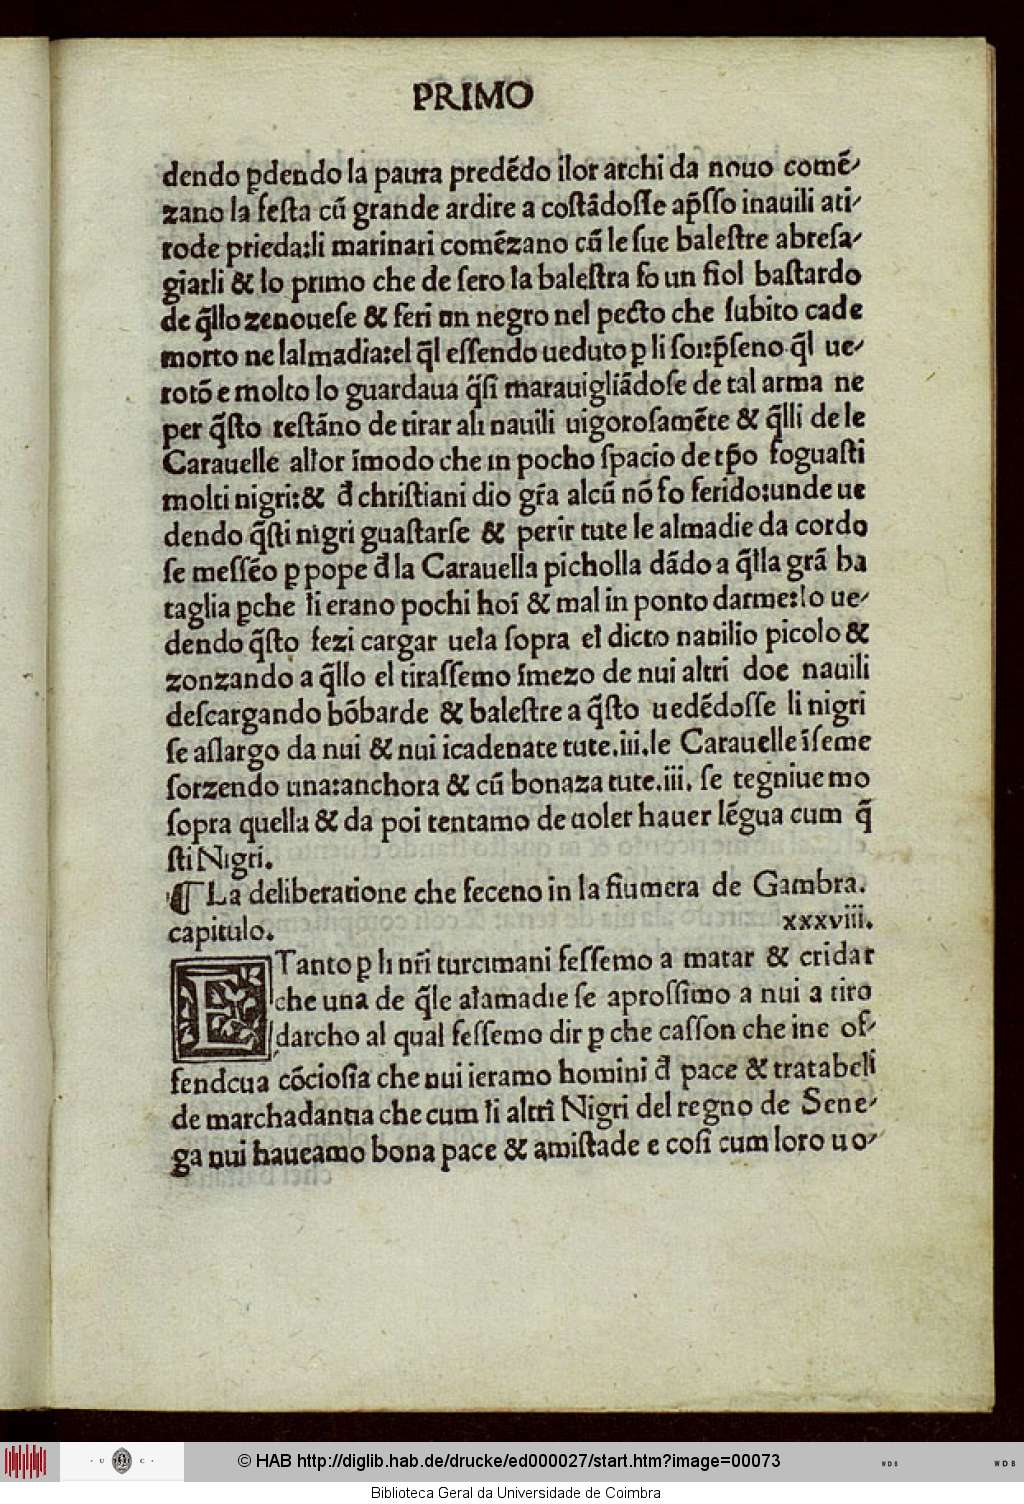 PRIMO
dendo ꝑdendo la paura predēdo ilor archi da nouo comē-
zano la festa cū grande ardire a costādosse ap̄sso inauili ati-
rode prieda:li marinari comēzano cū le sue balestre abresa-
giarli & lo primo che de sero la balestra fo un fiol bastardo
de q̄llo zenouese & feri un negro nel pecto che subito cade
morto ne lalmadia:el q̄l essendo ueduto ꝑ li soi:p̄seno q̄l ue-
rotō e molto lo guardaua q̄si marauigliādose de tal arma ne
per q̄sto restāno de tirar ali nauili uigorosamēte & q̄lli de le
Carauelle allor īmodo che in pocho spacio de tp̄o foguasti
molti nigri:& đ christiani dio gr̄a alcū nō fo ferido:unde ue
dendo q̄sti nigri guastarse & perir tute le almadie da cordo
se messēo ꝑ pope đ la Carauella picholla dādo a q̄lla grā ba
taglia ꝑche li erano pochi hoī & mal in ponto darme:lo ue-
dendo q̄sto fezi cargar uela sopra el dicto nauilio picolo &
zonzando a q̄llo el tirassemo īmezo de nui altri doe nauili
descargando bōbarde & balestre a q̄sto uedēdosse li nigri
se aslargo da nui & nui icadenate tute.iii.le Carauelle īseme
sorzendo una:anchora & cū bonaza tute.iii. se tegniuemo
sopra quella & da poi tentamo de uoler hauer lēgua cum q̄
sti Nigri.
¶ La deliberatione che feceno in la fiumera de Gambra.
capitulo. xxxviii.
ETanto ꝑ li nr̄i turcimani fessemo a matar & cridar
che una de q̄le alamadie se aprossimo a nui a tiro
darcho al qual fessemo dir ꝑ che casson che ine of-
fendeua cōciosia che nui ieramo homini đ pace & tratabeli
de marchadantia che cum li altri Nigri del regno de Sene-
ga nui haueamo bona pace & amistade e cosi cum loro uo-
© HAB http://diglib.hab.de/drucke/ed000027/start.htm?image=00073
Biblioteca Geral da Universidade de Coimbra